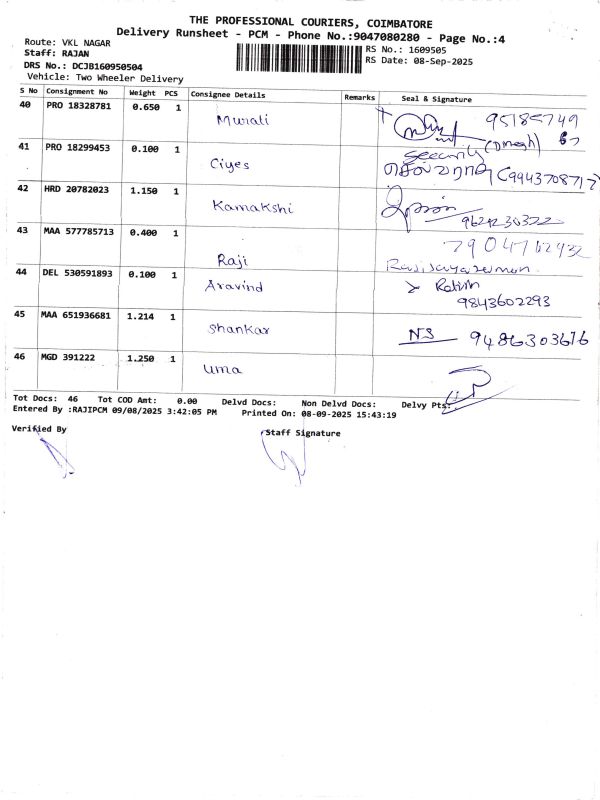 THE PROFESSIONAL COURIERS, COIMBATORE
Delivery Runsheet - PCM - Phone No.:9047080280 - Page No.:4
Route: VKL NAGAR
RS No.: 1609505
Staff: RAJAN
RS Date: 08-Sep-2025
DRS No.: DCJB160950504
Vehicle: Two Wheeler Delivery
S No Consignment No Weight PCS Consignee Details Remarks Seal & Signature
40 PRO 18328781 0.650 1 Murali
41 PRO 18299453 0.100 1 Ciyes
security
42 HRD 20782023 1.150 1 Kamakshi
43 MAA 577785713 0.400 1 Raji
44 DEL 530591893 0.100 1 Aravind
9843602293
45 MAA 651936681 1.214 1 Shankar NS 9486303676
46 MGD 391222 1.250 1 Uma
Tot Docs: 46 Tot COD Amt: 0.00 Delvd Docs: Non Delvd Docs: Delvy Pts:
Entered By :RAJIPCM 09/08/2025 3:42:05 PM Printed On: 08-09-2025 15:43:19
Verified By
Staff Signature